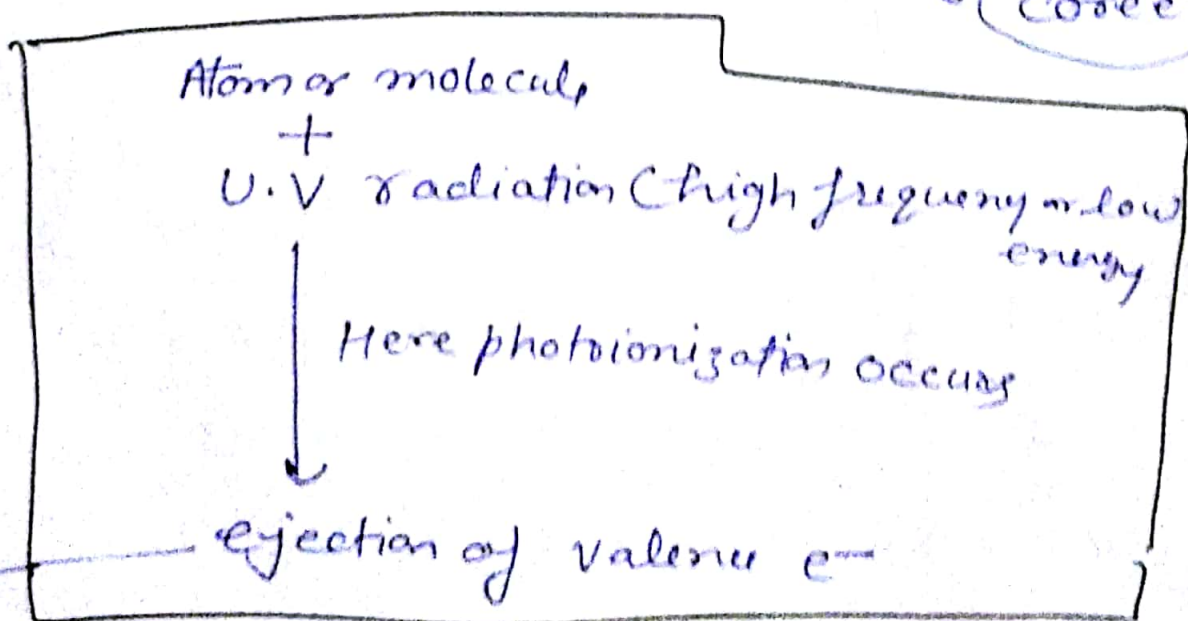 Atom or molecule
+
U.V radiation (high frequeny or low
energy
Here photoionization occurs
ejection of valence e-